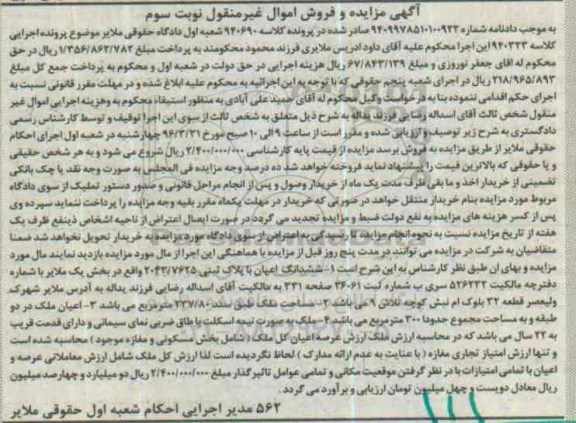 آگهی مزایده و فروش اموال غیرمنقول نوبت سوم
به موجب دادنامه شماره ۹۴۰۹۹۷۸۵۱۰۱۰۰۹۳۳ صادر شده در پرونده کلاسه ۹۴۰۶۹۰ شعبه اول دادگاه حقوقی ملایر موضوع پرونده اجرایی
کلاسه ۹۴۰۳۳۳ این اجرا محکوم علیه آقای داود ادریس ملایری فرزند محمود محکومند به پرداخت مبلغ ۱/۳۵۶/۸۶۲/۷۸۲ ریال در حق
محکوم له اقای جعفر نوروزی و مبلغ ۶۷/۸۴۳/۱۳۹ ریال هزینه اجرایی در حق دولت در شعبه اول و محکوم به پرداخت جمع کل مبلغ
۲۱۸/۹۶۵/۸۹۳ ریال در اجرای شعبه پنجم حقوقی که با توجه به این اجرائیه به محکوم علیه ابلاغ شده و در مهلت مقرر قانونی نسبت به
اجرای حکم اقدامی ننموده بنا به درخواست وکیل محکوم له آقای سعید علی آبادی به منظور استیفاء محکوم به وهزینه اجرایی اموال غیر
منقول شخص ثالث آقای اسداله رضایی فرزند یداله به شرح ذیل متعلق به شخص ثالث از سوی این اجرا توقیف و توسط کارشناس رسمی
دادگستری به شرح زیر توصیف و ارزیابی شده و مقرر است از ساعت ۹ الی ۱۰ صبح مورخ ۹۶/۳/۳۱ چهارشنبه در شعبه اول اجرای احکام
حقوقی ملایر از طریق مزایده به فروش برسد مزایده از قیمت پایه کارشناسی ۲/۴۰۰/۰۰۰/۰۰۰ ریال شروع می شود و به هر شخص حقیقی
و یا حقوقی که بالاترین قیمت را پیشنهاد نماید فروخته خواهد شد ده درصد وجه مزایده فی المجلس به صورت وجه نقد یا چک بانکی
تضمینی از خریدار اخذ و ما بقی ظرف مدت یک ماه از خریدار وصول و پس از انجام مراحل قانونی و صدور دستور تملیک از سوی دادگاه
مربوط مورد مزایده بنام خریدار منتقل خواهد در صورتی که خریدار در مهلت یکماه مقرر بقیه وجه مزایده را پرداخت ننماید سپرده وی
پس از کسر هزینه های مزایده به نفع دولت ضبط و مزایده تجدید می گردد در صورت ایصال اعتراض از ناحیه اشخاص ذینفع ظرف یک
هفته از تاریخ مزایده نسبت به نحوه انجام مزایده تا رسیدگی به اعتراض از سوی دادگاه مورد مزایده به خریدار تحویل نخواهد شد ضمنا
متقاضیان به شرکت در مزایده می توانند در مدت پنج روز قبل از مزایده با هماهنگی این اجرا از مال مورد مزایده بازدید نمایند مال مورد
مزایده و بهای ان طبق نظر کارشناس به این شرح است ۱- ششدانگ اعیان با پلاک ثبتی ۲۰۴۳/۷۶۲۵ واقع در بخش یک ملایر با شماره
دفترچه مالکیت ۵۲۶۲۳۲ سری ب شماره ثبت ۳۶۰۶۱ صفحه ۳۳۱ به مالکیت آقای اسداله رضایی فرزند یداله به آدرس ملایر شهرک
ولیعصر قطعه ۲۲ بلوک ام نبش کوچه ثلاثن ۹ می باشد ۲- مساحت ملک طبق سند ۲۳۷/۸۰ مترمربع می باشد ۳- اعیان ملک در دو
طبقه و به مساحت مجموع حدودا ۳۰۰ مترمربع می باشد ۴- ملک به صورت نیمه اسکلت با طاق ضربی نمای سیمانی و دارای قدمت قریب
به ۲۲ سال می باشد که در محاسبه ارزش ملک ارزش عرصه اعیان کل ملک (شامل بخش مسکونی و مغازه موجود) محاسبه شده است
و تنها ارزش امتیاز تجاری مغازه (با عنایت به عدم ارائه مدارک) لحاظ نگردیده است لذا ارزش کل ملک شامل ارزش معاملاتی عرصه و
اعیان با تمامی امتیازات با در نظر گرفتن موقعیت مکانی و تمامی عوامل تاثیر گذار مبلغ ۲/۴۰۰/۰۰۰/۰۰۰ ریال دو میلیارد و چهارصد میلیون
ریال معادل دویست و چهل میلیون تومان ارزیابی و برآورد می گردد.
۵۶۲ مدیر اجرایی احکام شعبه اول حقوقی ملایر